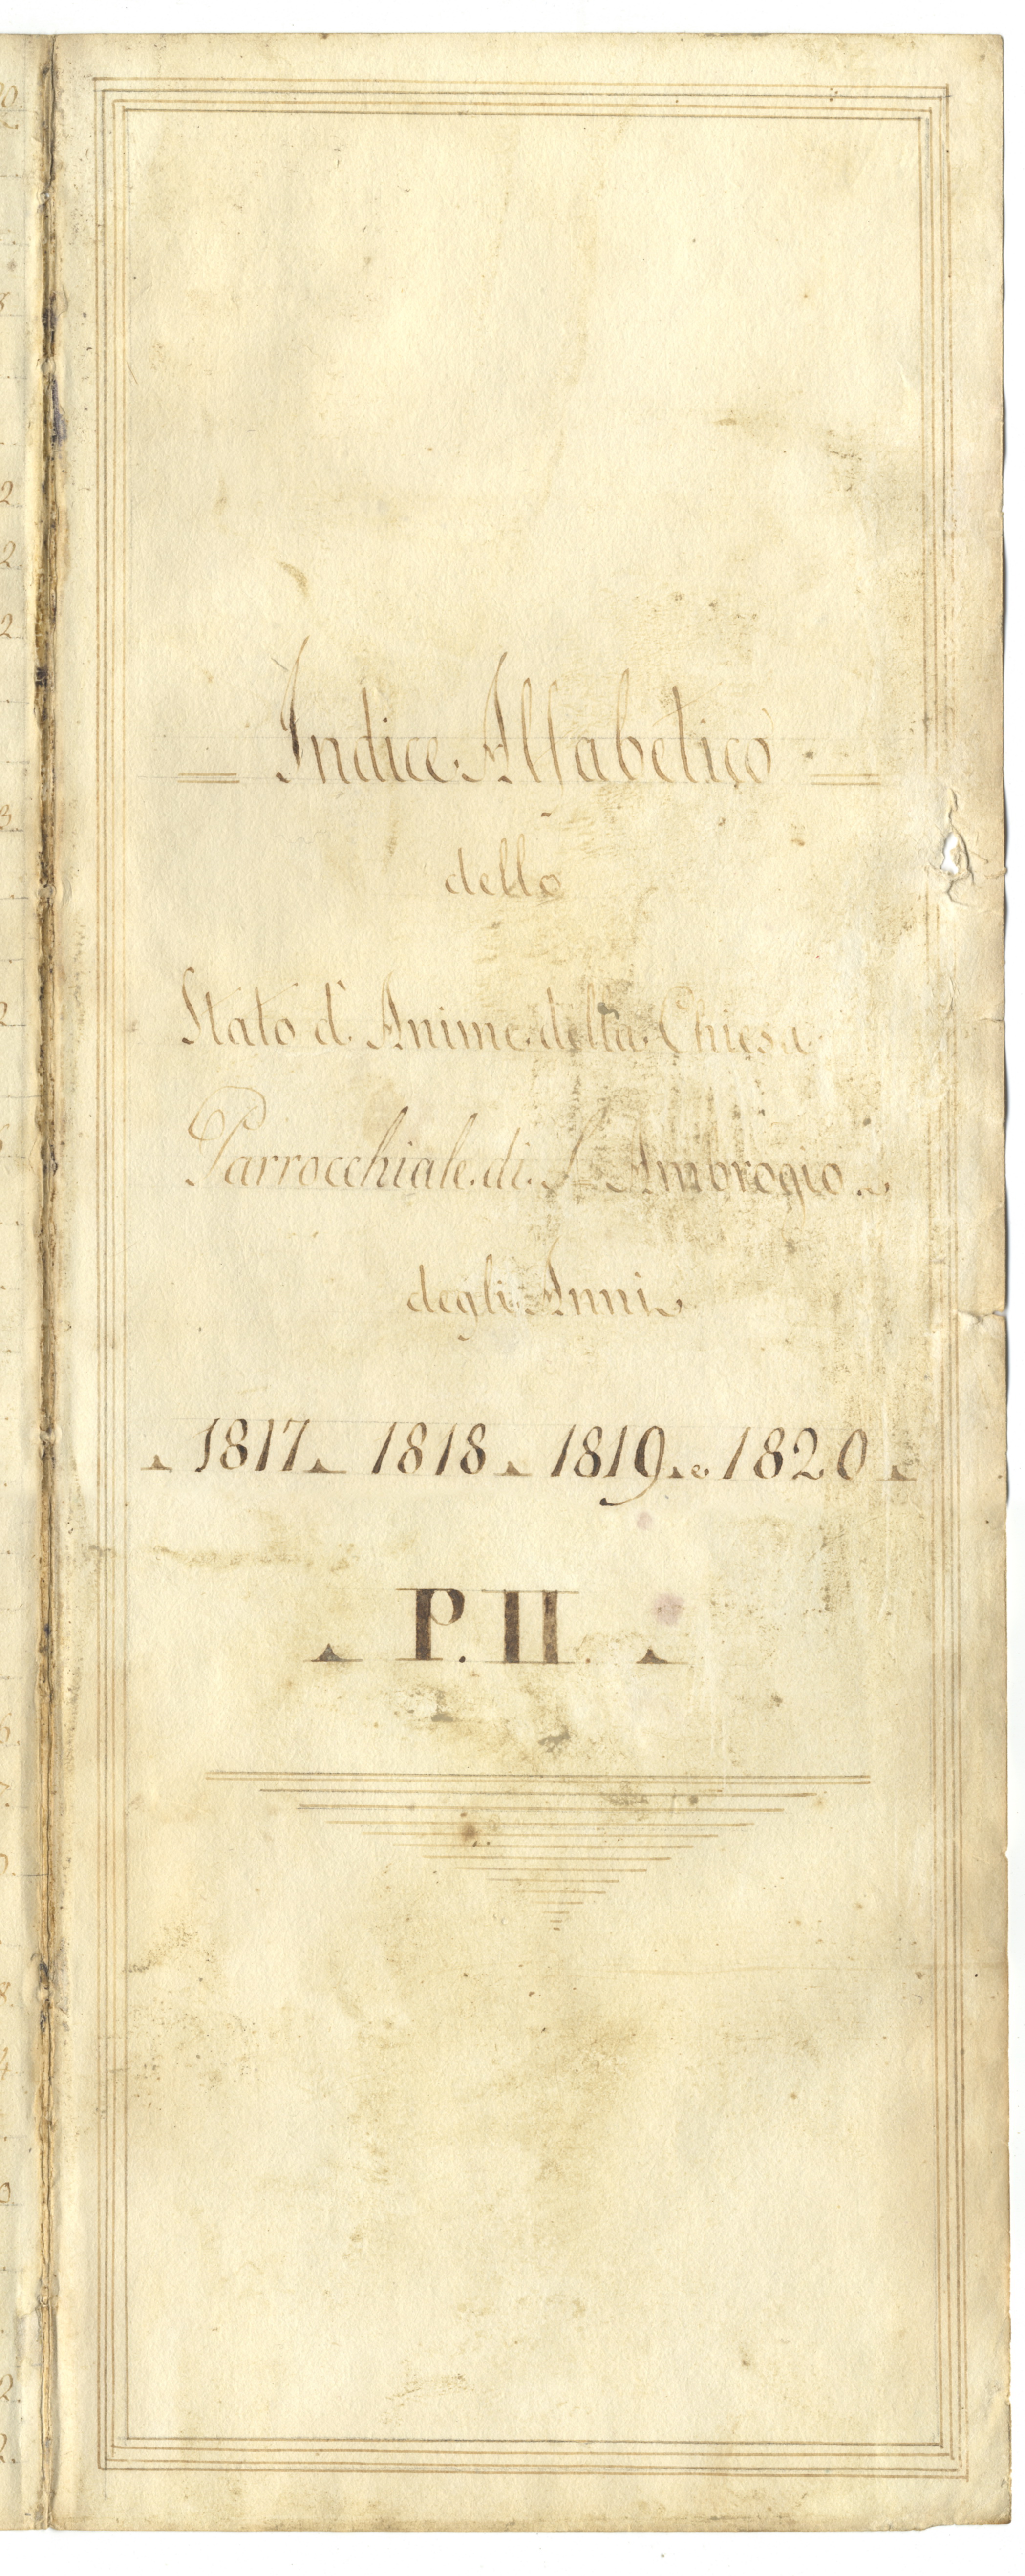 Indice Alfabetico
dello
Stato d'Anime della Chiesa
Parrocchiale di S. Ambrogio
degli Anni
1817 1818 1819 e 1820
P. II.